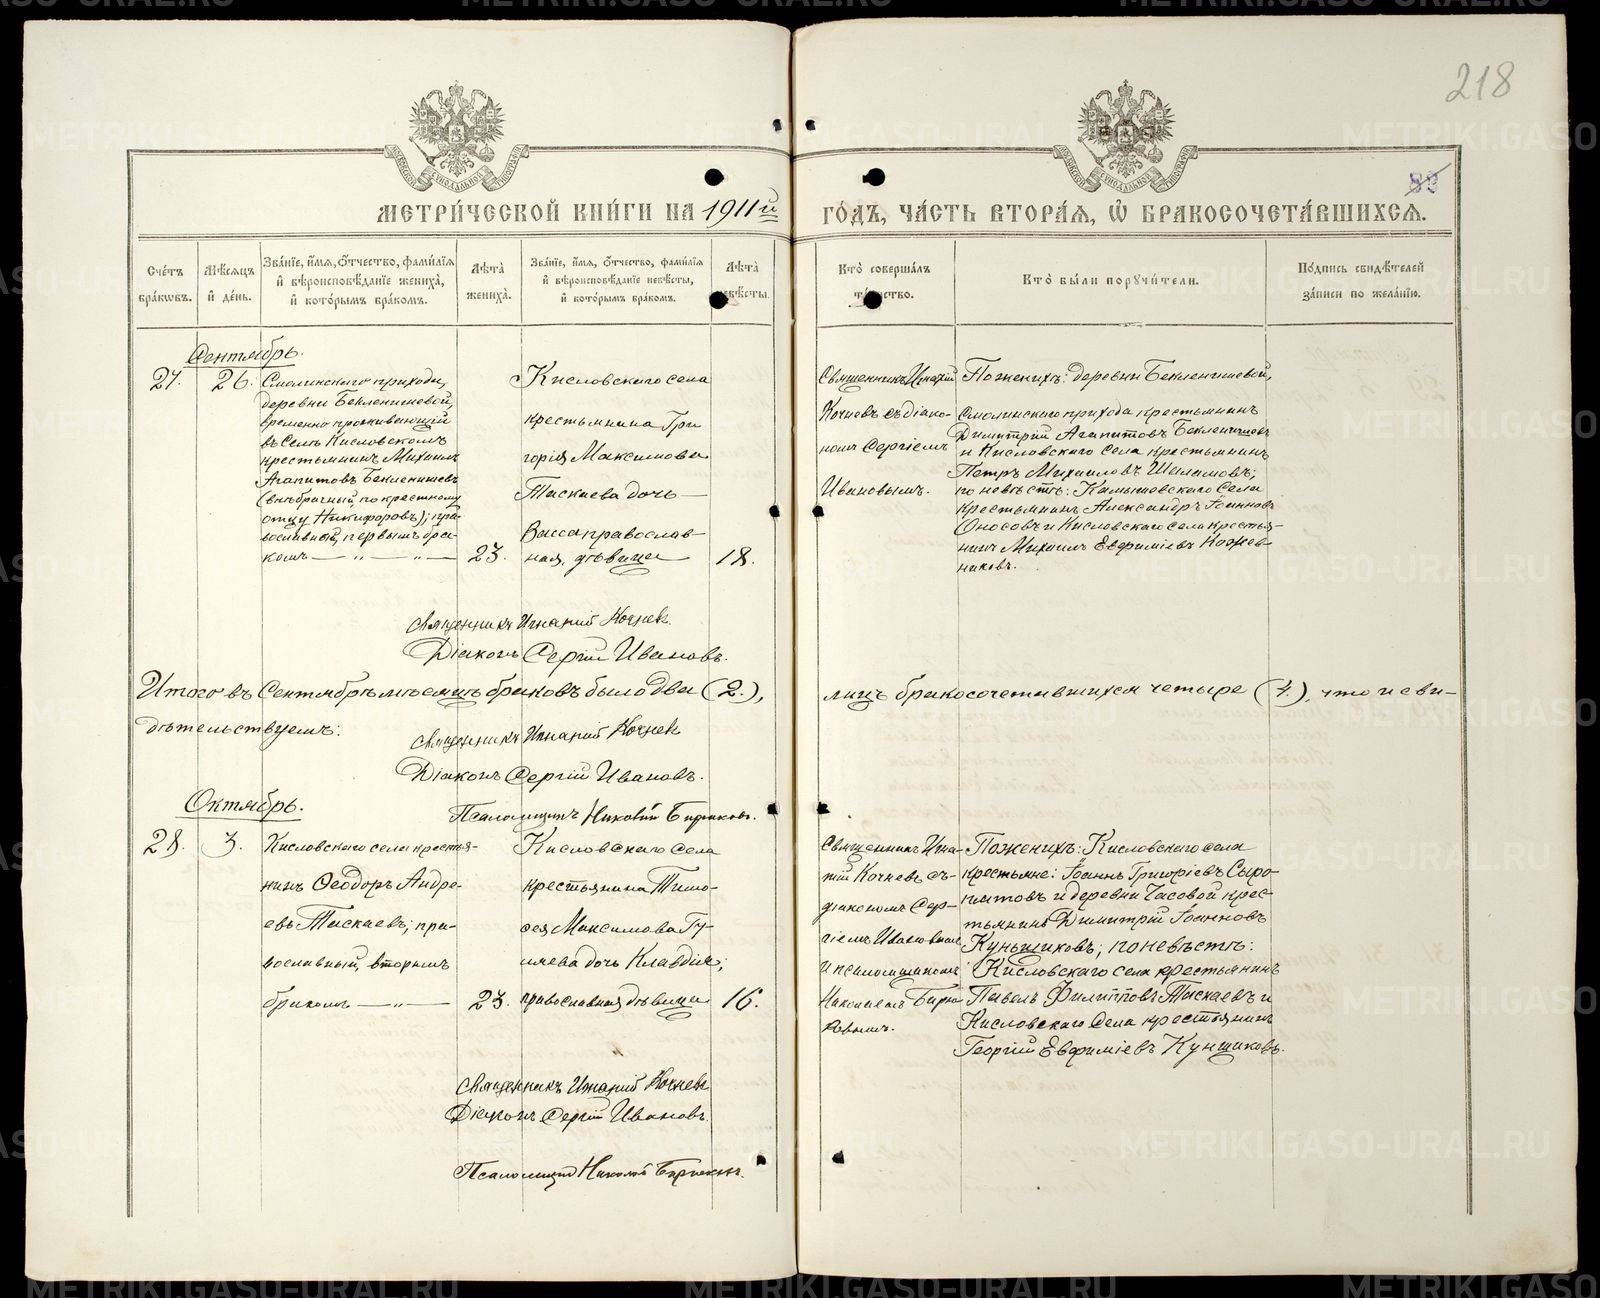 218
89
МЕТРИ́ЧЕСКОЙ КНИ́ГИ НА 1911й ГО́ДЪ, ЧА́СТЬ ВТОРА́Я, Ѽ БРАКОСОЧЕТА́ВШИХСЯ.
Сче́тъ бра́ковъ.
Мѣ́сяцъ и҆ де́нь.
Зва́нїе, и҆́мя, ѻ҆́тчество, фами́лїя и҆ вѣроисповѣ́данїе жениха̀, и҆ кото́рымъ бра́комъ.
Лѣ́та жениха̀.
Зва́нїе, и҆́мя, ѻ҆́тчество, фами́лїя и҆ вѣроисповѣ́данїе невѣ́сты, и҆ кото́рымъ бра́комъ.
Лѣ́та невѣ́сты.
Кто̀ соверша́лъ та́инство.
Кто̀ бы́ли порꙋчи́тели.
По́дпись свидѣ́телей за́писи по жела́нїю.
Сентябрь.
27.
26.
Смолинскаго прихода,
деревни Бекленищевой,
временно проживающій
въ Селѣ Кисловскомъ
крестьянинъ Михаилъ
Агапитовъ Бекленищевъ
(внѣбрачный, по крестному
отцу Никифоровъ); пра-
вославный, первымъ бра-
комъ
23.
Кисловскаго села
крестьянина Гри
горія Максимова
Таскаева дочь
Васса православ-
ная, дѣвица
18.
Священникъ Игнатій
Кочневъ съ діако-
номъ Сергіемъ
Ивановымъ.
По женихѣ: деревни Бекленищевой,
Смолинскаго прихода крестьянинъ
Димитрій Агапитовъ Бекленищевъ
и Кисловскаго села крестьянинъ
Петръ Михаиловъ Шаламовъ;
по невѣстѣ: Камышевскаго Села
крестьянинъ Александръ Іоанновъ
Оносовъ и Кисловскаго села крестья-
нинъ Михаилъ Евфиміевъ Кожев
никовъ.
Священникъ Игнатій Кочнев
Діаконъ Сергій Ивановъ.
Итого въ Сентябрѣ мѣсяцѣ браковъ было два (2.), лицъ бракосочетавшихся четыре (4.), что и сви-
дѣтельствуемъ:
Священникъ Игнатій Кочнев
Діаконъ Сергій Ивановъ.
Псаломщикъ Николай Бирюковъ.
Октябрь.
28.
3.
Кисловскаго села крестья-
нинъ Ѳеодоръ Андре-
евъ Таскаевъ; пра-
вославный, вторымъ
бракомъ
23.
Кисловскаго Села
крестьянина Тимо-
ѳея Максимова Гу-
дочь Клавдія;
православная, дѣвица
16.
Священникъ Игна-
тій Кочневъ съ
діакономъ Сер-
гіемъ Ивановымъ
и псаломщикомъ
Николаемъ Бирю
ковымъ.
По женихѣ: Кисловскаго села
крестьяне: Іоаннъ Григоріевъ Сыро-
пятовъ и деревни Часовой крес-
тьянинъ Димитрій Іоанновъ
Куньщиковъ; по невѣстѣ:
Кисловскаго села крестьянинъ
Павелъ Филипповъ Таскаевъ и
Кисловскаго Села крестьянинъ
Георгій Евфиміевъ Кунщиковъ.
Священникъ Игнатій Кочнев
Діаконъ Сергій Ивановъ.
Псаломщикъ Николай Бирюковъ.
METRIKI.GASO-URAL.RU